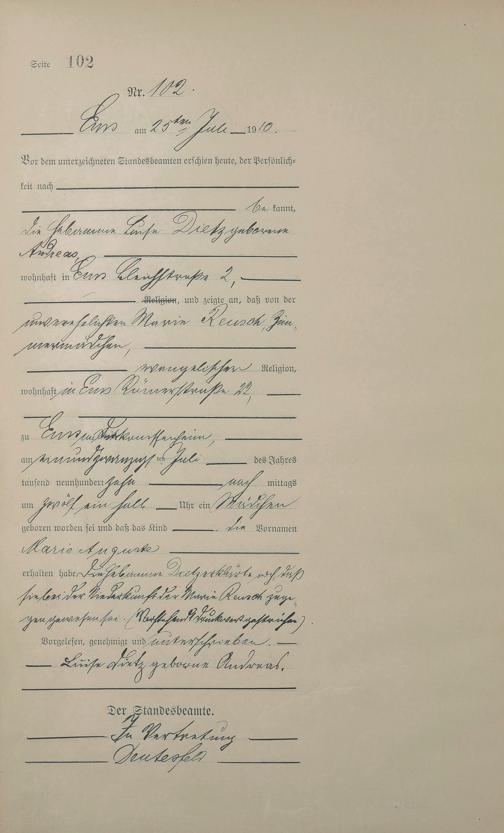 Seite 102
Nr. 102.
Ems am 25ten Juli 1910.
Vor dem unterzeichneten Standesbeamten erschien heute, der Persönlich-
keit nach
be kannt,
die Hebamme Luise Dietz geborene
Andreas,
wohnhaft in Ems Bleichstraße 2,
Religion, und zeigte an, daß von der
unverehelichten Marie Reusch, Zim-
mermädchen,
evangelischer Religion,
wohnhaft in Ems Römerstraße 22,
zu Ems, im
am Juli des Jahres
tausend neunhundert zehn nach mittags
um zwölf ein halb Uhr ein Mädchen
geboren worden sei und daß das Kind die Vornamen
Marie Auguste
erhalten habe. Die Hebamme Dietz erklärte noch, daß
sie bei der Niederkunft der Marie Reusch zuge-
gen gewesen sei. (Vorstehend Druckwort gestrichen).
Vorgelesen, genehmigt und unterschrieben.
Luise Dietz geborne Andreas.
Der Standesbeamte.
In Vertretung